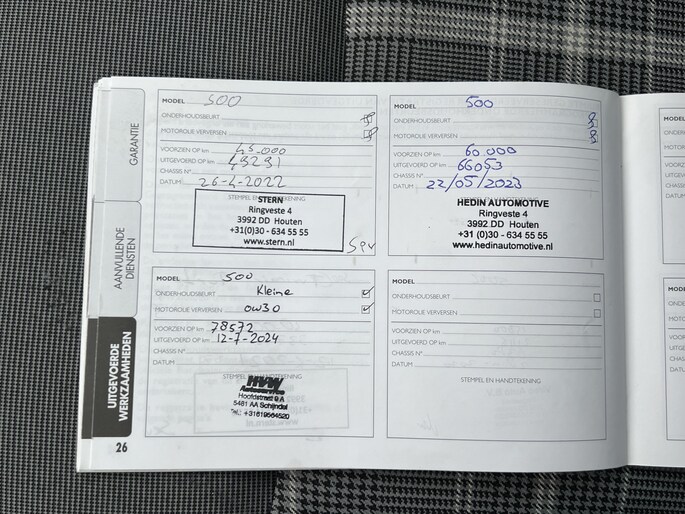 GARANTIE
AANVULLENDE
DIENSTEN
UITGEVOERDE
WERKZAAMHEDEN
26
MODEL 500
ONDERHOUDSBEURT
MOTOROLIE VERVERSEN
VOORZIEN OP km 45.000
UITGEVOERD OP km 49291
CHASSIS N°
DATUM 26-4-2022
STEMPEL EN HANDTEKENING
STERN
Ringveste 4
3992 DD Houten
+31(0)30 - 634 55 55
www.stern.nl
MODEL 500
ONDERHOUDSBEURT
MOTOROLIE VERVERSEN
VOORZIEN OP km 60.000
UITGEVOERD OP km 66053
CHASSIS N°
DATUM 22/05/2023
STEMPEL EN HANDTEKENING
HEDIN AUTOMOTIVE
Ringveste 4
3992 DD Houten
+31(0)30 - 634 55 55
www.hedinautomotive.nl
MODEL 500
ONDERHOUDSBEURT Kleine
MOTOROLIE VERVERSEN 0w30
VOORZIEN OP km 78572
UITGEVOERD OP km 12-7-2024
CHASSIS N°
DATUM
STEMPEL EN HANDTEKENING
Hoofdstraat 9 A
5481 AA Schijndel
Tel.: +31619564520
MODEL
ONDERHOUDSBEURT
MOTOROLIE VERVERSEN
VOORZIEN OP km
UITGEVOERD OP km
CHASSIS N°
DATUM
STEMPEL EN HANDTEKENING
MODEL
ONDERH
MOTORO
VOORZIE
UITGEVO
CHASSIS
DATUM
MODEL
ONDER
MOTOR
VOORZ
UITGEV
CHASS
DATUM